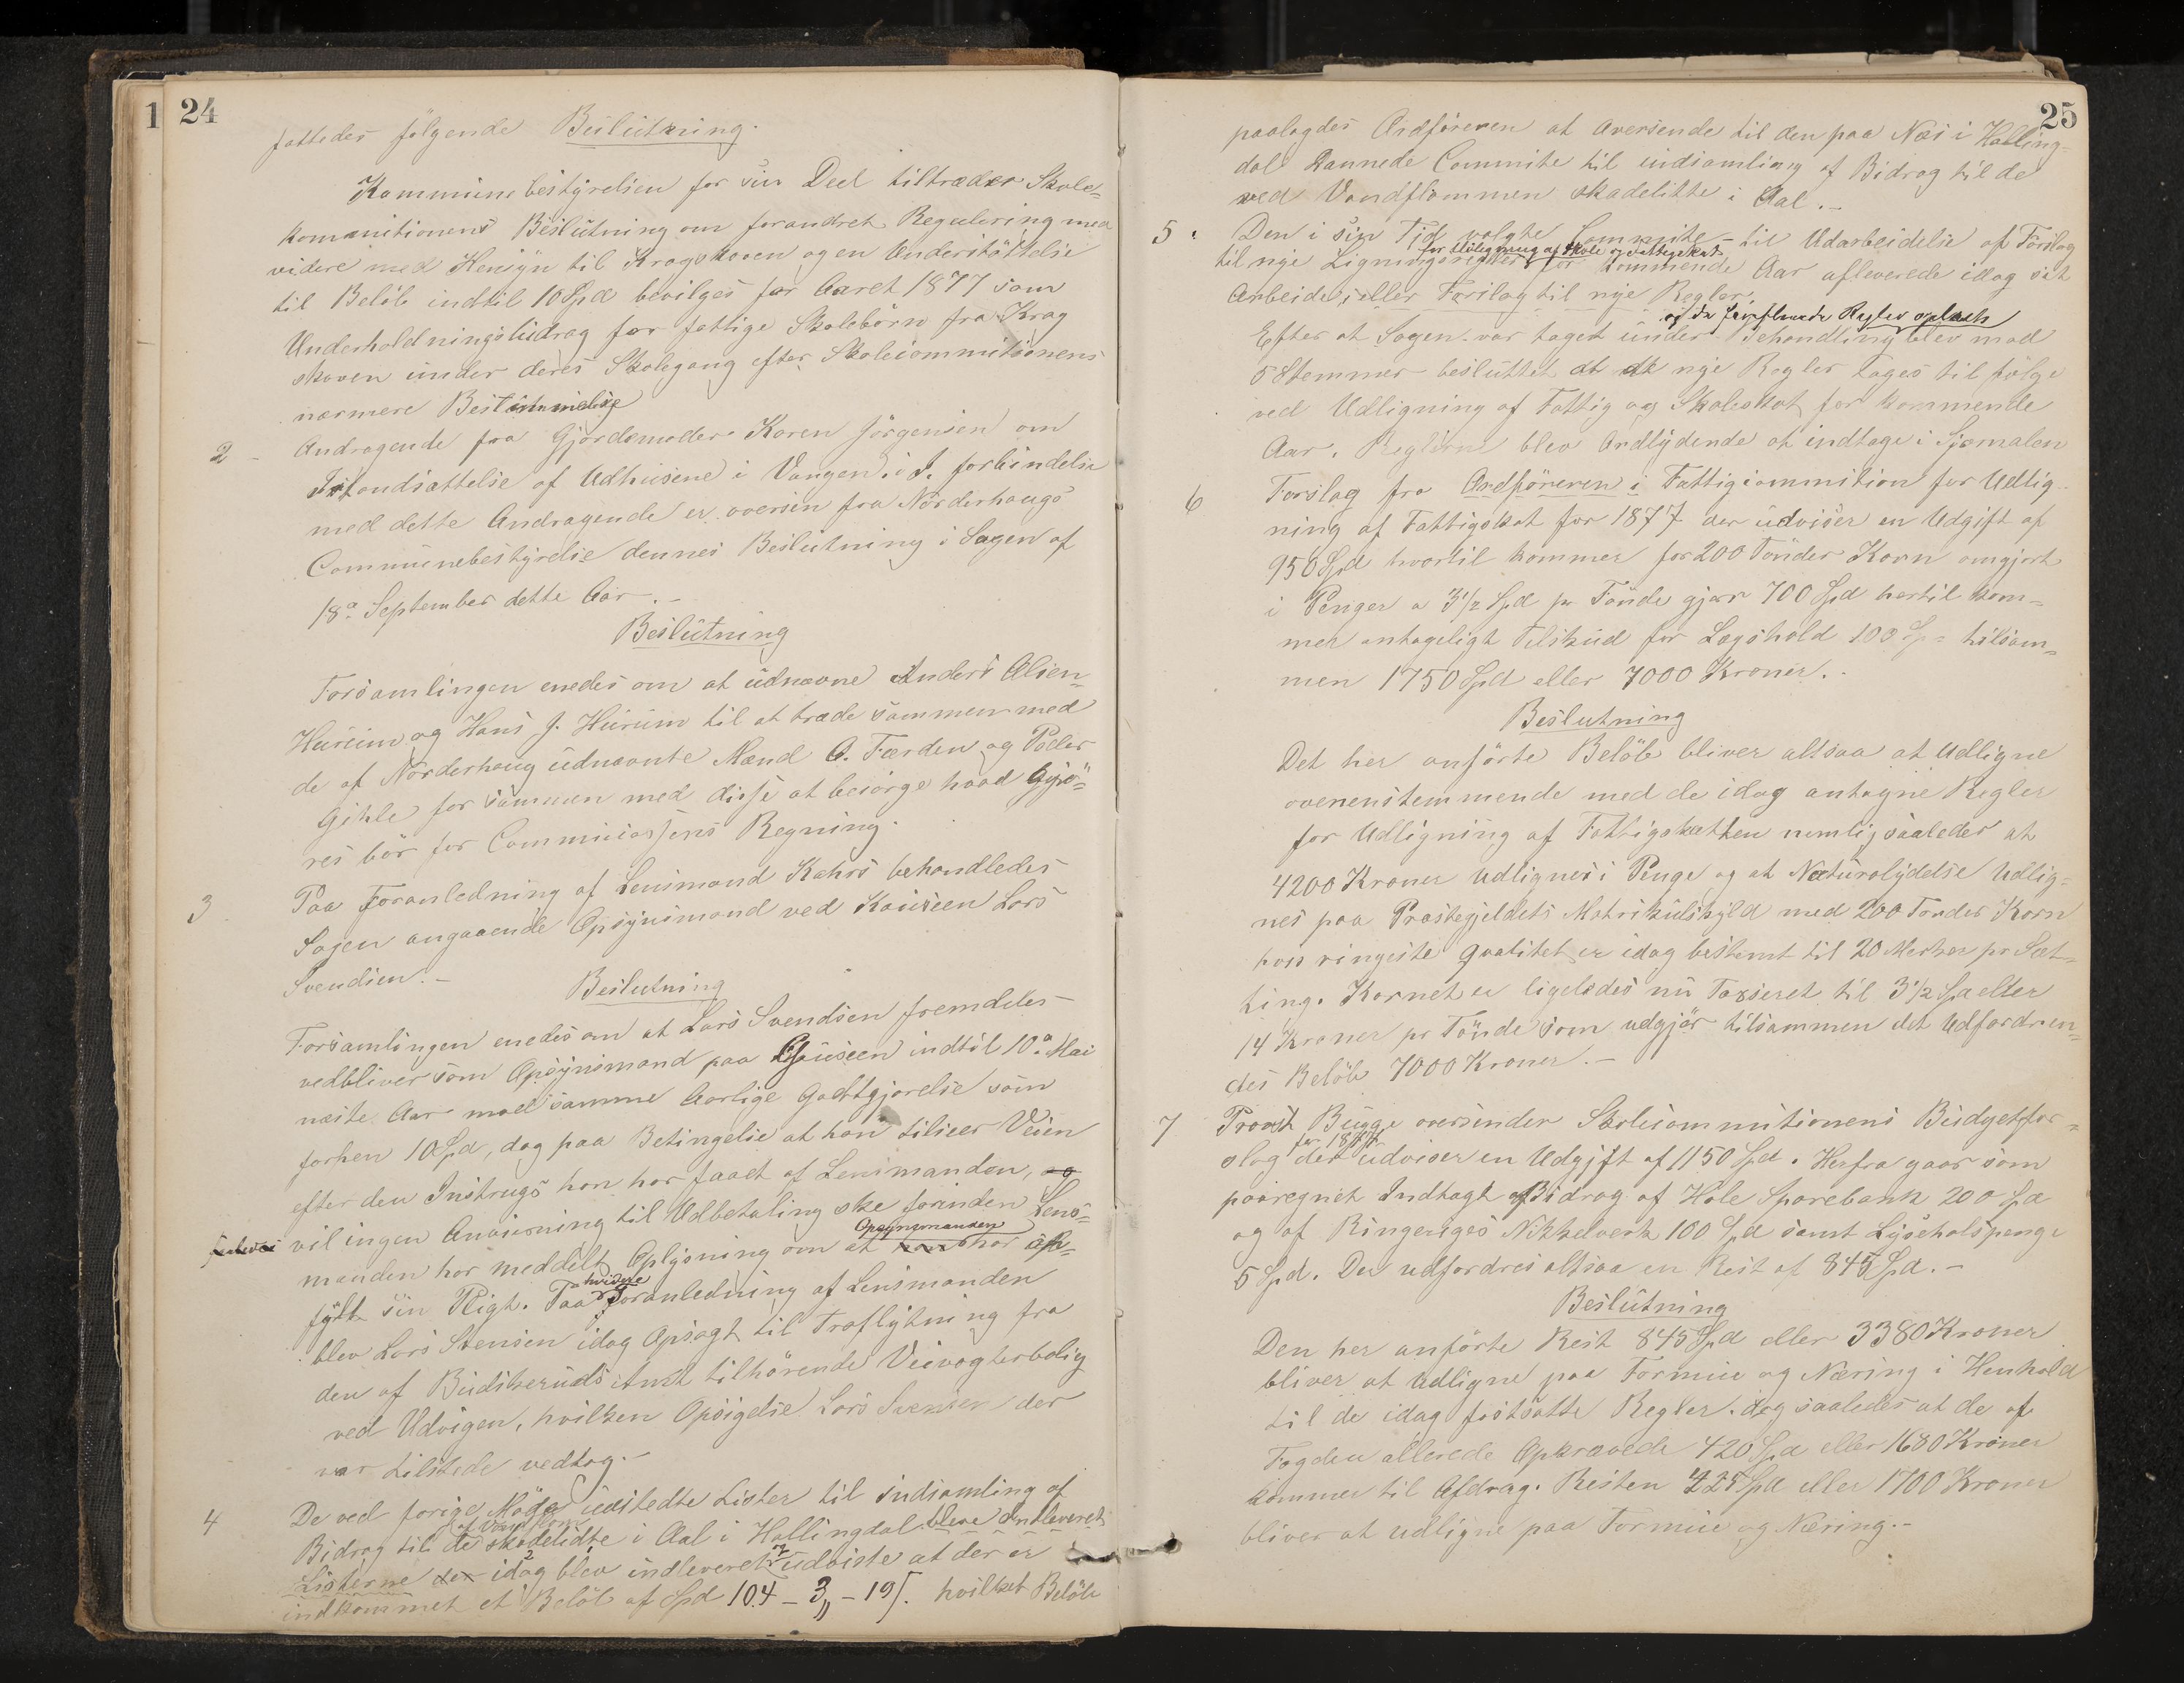 1 24
fattedes følgende Beslutning.
Kommunebestyrelsen for sin Deel tiltræder Skole=
kommitionens Beslutning om forandret Regulering med
videre med Hensyn til Kragskoven og en Understøttelse
til Beløb indtil 10 Spd bevilges for Aaret 1877 som
Underholdningsbidrag for fattige Skolebørn fra Krag
skoven under deres Skolegang efter Skolecommitionens
nærmere Bestemmelse
2 - Andragende fra Gjordemoder Karen Jørgensen om
Istandsættelse af Udhusene i Vangen. i S. forbindelse
med dette Andragende er oversen fra Nørderhaugs
Communebestyrelse dennes Beslutning i Sagen af
18de September dette Aar. -
Beslutning
Forsamlingen enedes om at udnævne Anders Olsen
Hurum og Hans J. Hurum til at træde sammen med
de af Nørderhaug udnævnte Mænd A. Færden og Peder
Gihle for sammen med disse at besørge hvad Gjø=
res bør for Commiciossens Regning.
3 Paa Foranledning af Lensmand Kahrs behandledes
Sagen angaaende Opsynsmand ved Kaiseen Lars
Svendsen. -
Beslutning
Forsamlingen enedes om at Lars Svendsen fremdeles
vedbliver som Opsynsmand paa Chauseen indtil 10de Mai
næste Aar mod samme Aarlige Godtgjørelse som
forhen 10 Spd, dog paa Betingelse at han tilseer Veien
efter den Instrugs han har faaet af Lensmanden, og
vil ingen Anvisning til Udbetaling ske forinden Lens=
manden har meddelt Oplysning om at Opsynsmanden har op=
fyldt sin Pligt. Paa Foranledning af Lensmanden
blev Lars Svensen idag Opsagt til Fraflytning fra
den af Budskeruds Amt tilhørende Veivogterbolig
ved Udvigen, hvilken Opsigelse Lars Svensen der
var tilstede vedtog. -
4 De ved forige Møde udstedte Lister til indsamling af
Bidrag til de af Vandflom skadelidte i Aal i Hallingdal bleve Indleveret
Listerne der idag blev indleveret udviste at der er
indkommet et Beløb af Spd 104 - 3„ - 19 s. hvilket Beløb
25
paalagdes Ordføreren at Oversende til den paa Næs i Halling=
dal Dannede Committe til indsamling af Bidrag til de
ved Vandflommen skadelitte i Aal. -
5. Den i sin Tid valgte Committe til Udarbeidelse af Forslag
til nye Ligningsregler for Udligning af Skole og Fattigskat for kommende Aar afleverede idag sit
Arbeide, eller Forslag til nye Regler.
og de forefundne Regler oplæste
Efter at Sagen var taget under Behandling blev med
5 Stemmer besluttet at de nye Regler tages til følge
ved Udligning af Fattig og Skoleskat for kommende
Aar. Reglerne blev Ordlydende at indtage i Sjornalen
6 Forslag fra Ordføreren i Fattigcommition for Udlig
ning af Fattigskat for 1877 der udviser en Udgift af
950 Spd hvortil kommer for 200 Tønder Korn omgjort
i Penger a 3 1/2 Spd pr Tønde gjør 700 Spd hertil kom=
mer antageligt Tilskud for Lægshold 100 Sp= tilsam=
men 1750 Spd eller 7000 Kroner.
Beslutning
Det her anførte Beløb bliver altsaa at Udligne
overenstemmende med de idag antagne Regler
for Udligning af Fattigskatten nemlig saaledes at
4200 Kroner Udlignes i Penge og at Naturalydelse Udlig=
nes paa Præstegjeldets Matrikulskyld med 200 Tønder Korn
hvis ringeste Qvalitet er idag bestemt til 20 Merker pr Sæt=
ting. Kornet er ligeledes nu Taxseret til 3 1/2 Spd eller
14 Kroner pr Tønde som udgjør tilsammen det Udfordren=
des Beløb 7000 Kroner. -
7 Provst Bugge oversender Skolecommitionens Budgetfor=
slag for 1877 der udviser en Udgift af 1150 Spd. Herfra gaar som
paaregnet Indtægt Bidrag af Hole Sparebank 200 Spd
og af Ringeriges Nikkelverk 100 Spd samt Lyseholspenge
5 Spd. Der udfordres altsaa en Rest af 845 Spd. -
Beslutning
Den her anførte Rest 845 Spd eller 3380 Kroner
bliver at Udligne paa Formue og Næring i Henhold
til de idag fastsatte Regler. dog saaledes at de af
Fogden allerede Opkrævede 420 Spd eller 1680 Kroner
kommer til Afdrag. Resten 425 Spd eller 1700 Kroner
bliver at udligne paa Formue og Næring. -